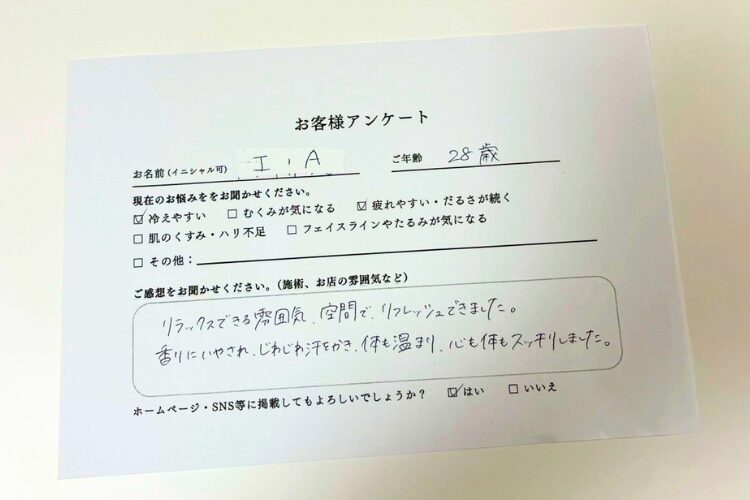 お客様アンケート
お名前(イニシャル可) I . A ご年齢 28歳
現在のお悩みををお聞かせください。
☑ 冷えやすい ☐ むくみが気になる ☑ 疲れやすい・だるさが続く
☐ 肌のくすみ・ハリ不足 ☐ フェイスラインやたるみが気になる
☐ その他：
ご感想をお聞かせください。(施術、お店の雰囲気など)
リラックスできる雰囲気、空間で、リフレッシュできました。
香りにいやされ、じわじわ汗をかき、体も温まり、心も体もスッキリしました。
ホームページ・SNS等に掲載してもよろしいでしょうか？ ☑ はい ☐ いいえ